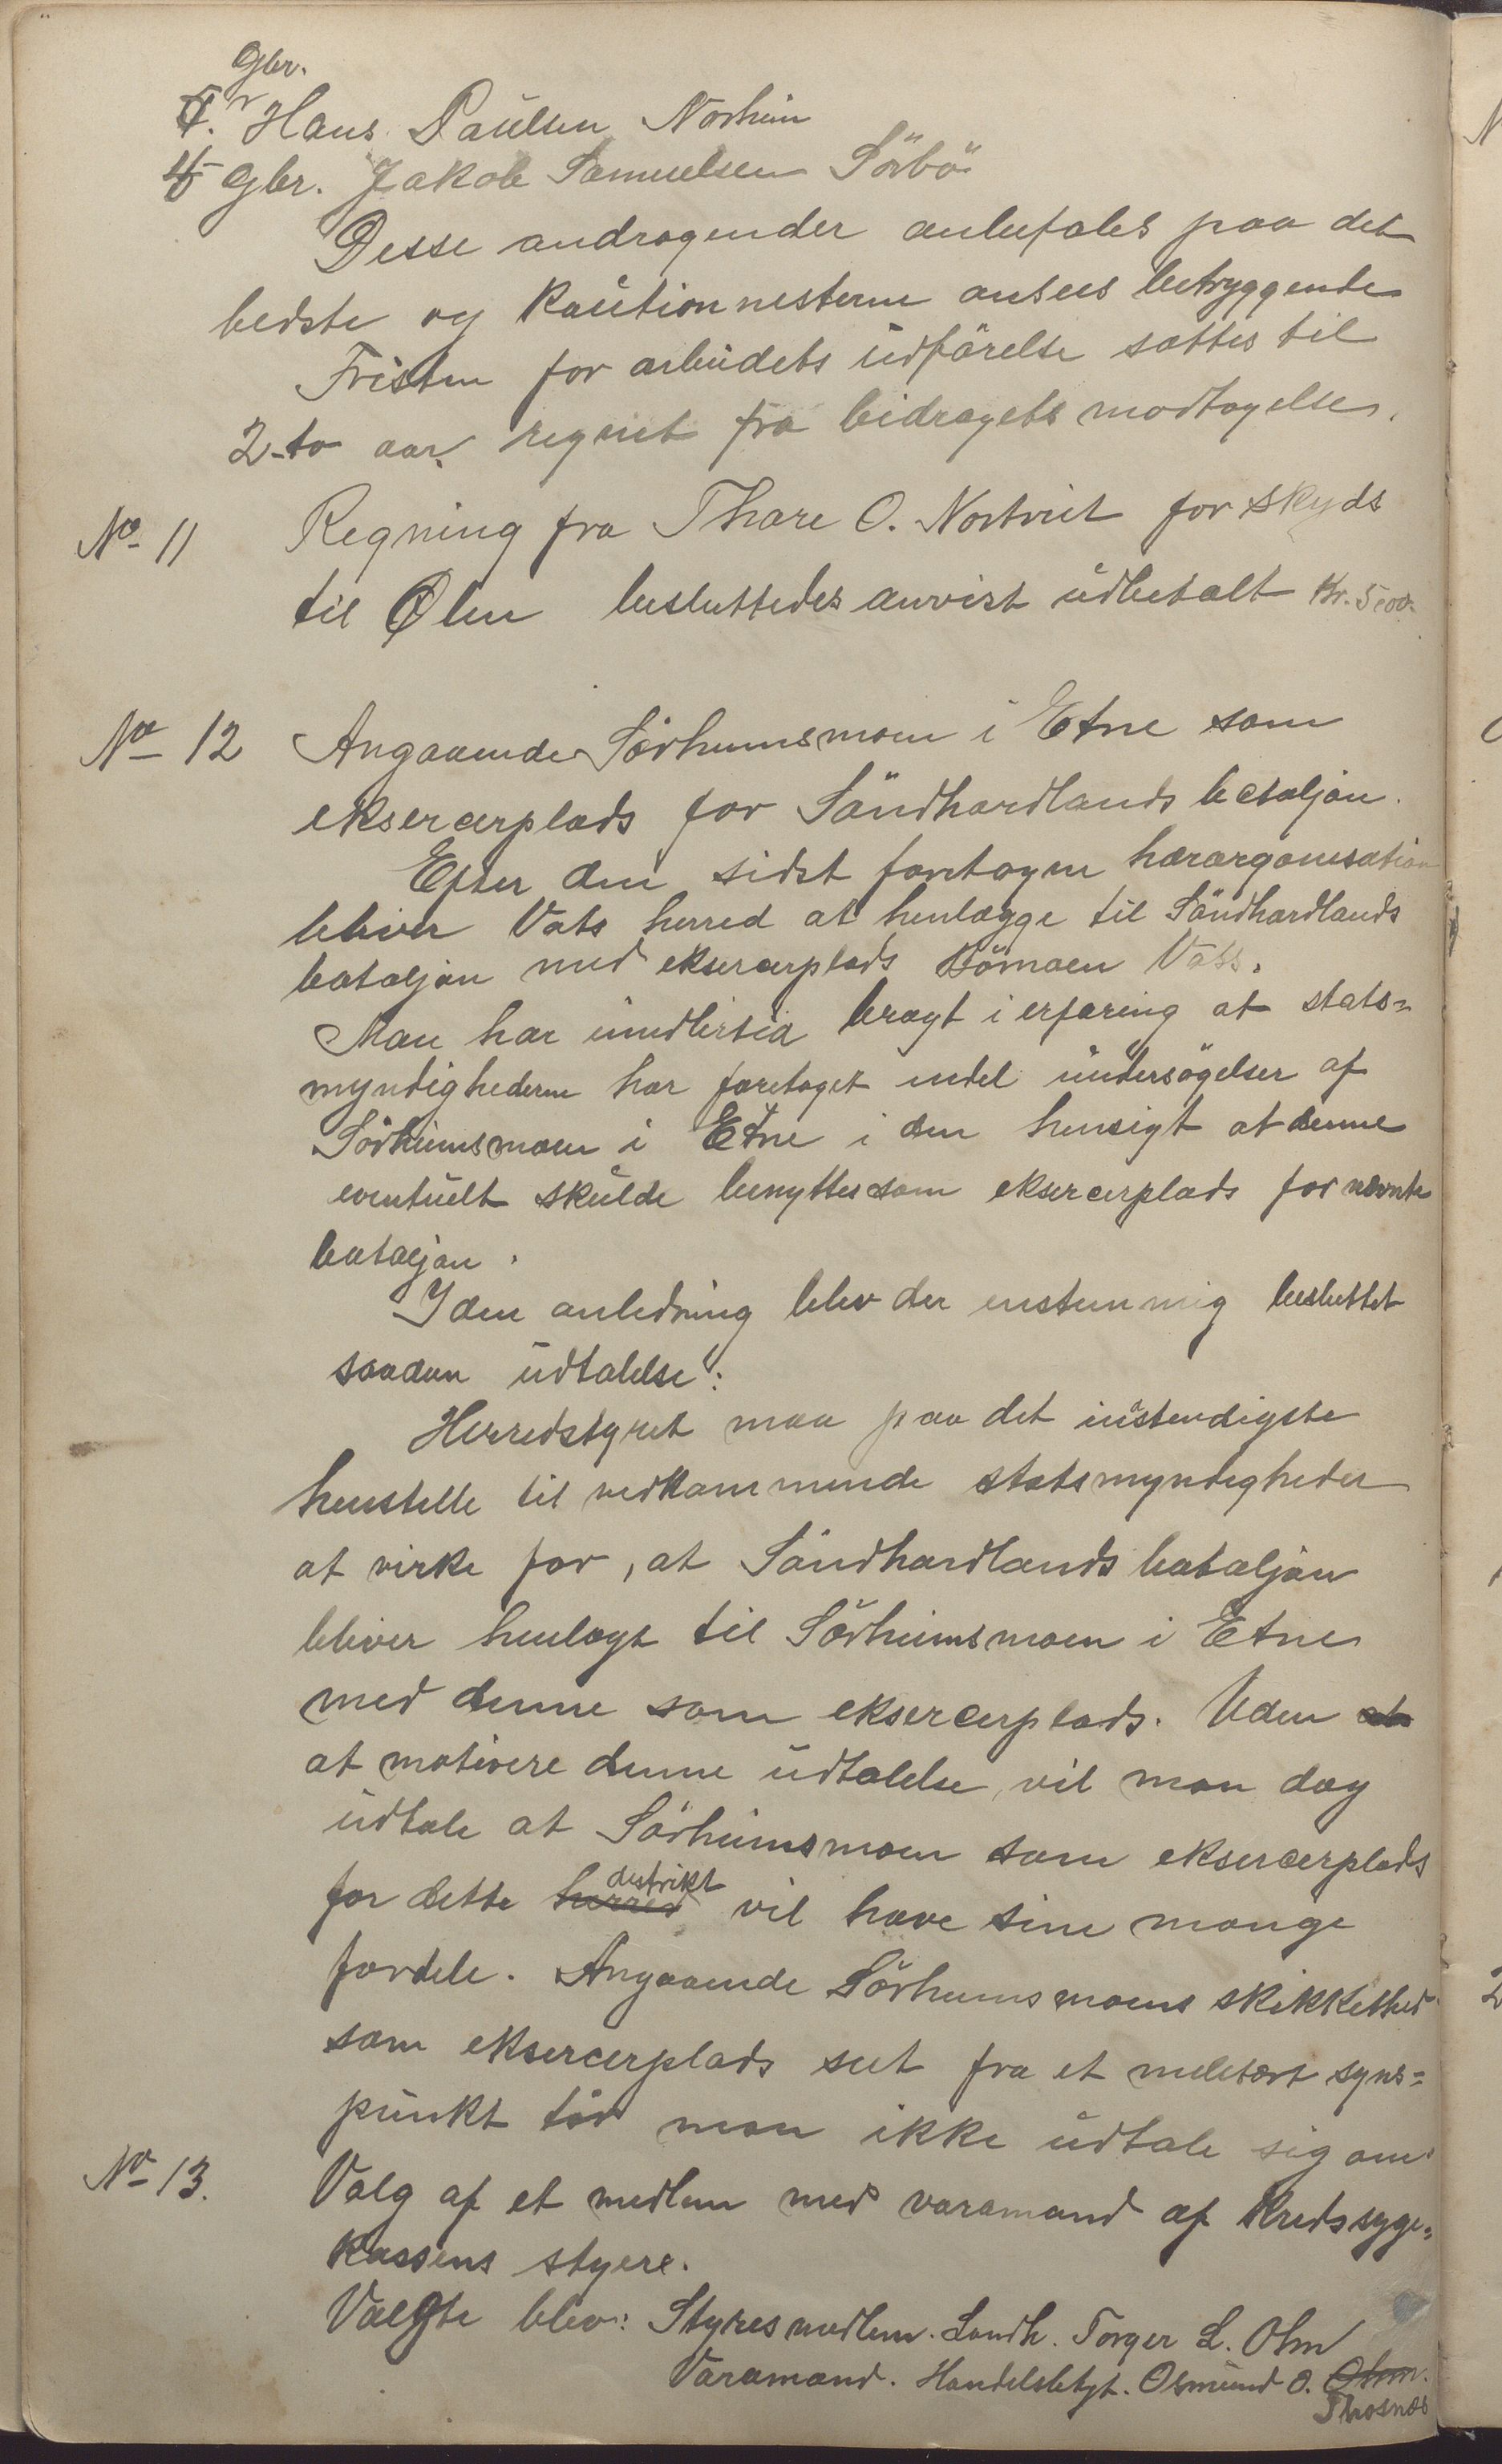 Gbr.
4. Hans Paulsen Norheim
5 Gbr. Jakob Samuelsen Sörbö
Desse andragender anbefales paa det
bedste og kautionnesterne ansees betryggende
Fristen for arbeidets udförelse sættes til
2-to aar regnet fra bidragets modtagelse.
No 11 Regning fra Thore O. Nortveit for skyds
til Ølen besluttedes anvist udbetalt Kr. 5.00
No 12 Angaaende Sörheimsmoen i Etne som
eksercerplads for Söndhordlands bataljon.
Efter den sidst foretagne hærorganisation
bliver Vats herred at henlægge til Söndhordlands
bataljon med eksercerplads Bömoen Voss.
Man har imidlertid bragt i erfaring at stats=
myndighederne har foretaget endel undersögelser af
Sörheimsmoen i Etne i den hensigt at denne
eventuelt skulde benyttes som eksercerplads for nævnte
bataljon.
I den anledning blev der enstemmig besluttet
saadan udtalelse:
Herredstyret maa paa det instendigste
henstille til vedkommende statsmyndigheder
at virke for, at Söndhordlands bataljon
bliver henlagt til Sörheimsmoen i Etne
med denne som eksercerplads. Uden at
at motivere denne udtalelse, vil man dog
udtale at Sörheimsmoen som eksercerplads
for dette herred distrikt vil have sine mange
fordele. Angaaende Sörheimsmoens skikkethed
som eksercerplads seet fra et militært syns=
punkt tör man ikke udtale sig om
No 13. Valg af et medlem med varamand af Kredssyge=
kassens styere.
Valgte blev: Styresmedlem. Landh. Torger L. Olen
Varamand. Handelsbetgt. Osmund O. Olen.
Thosnæs